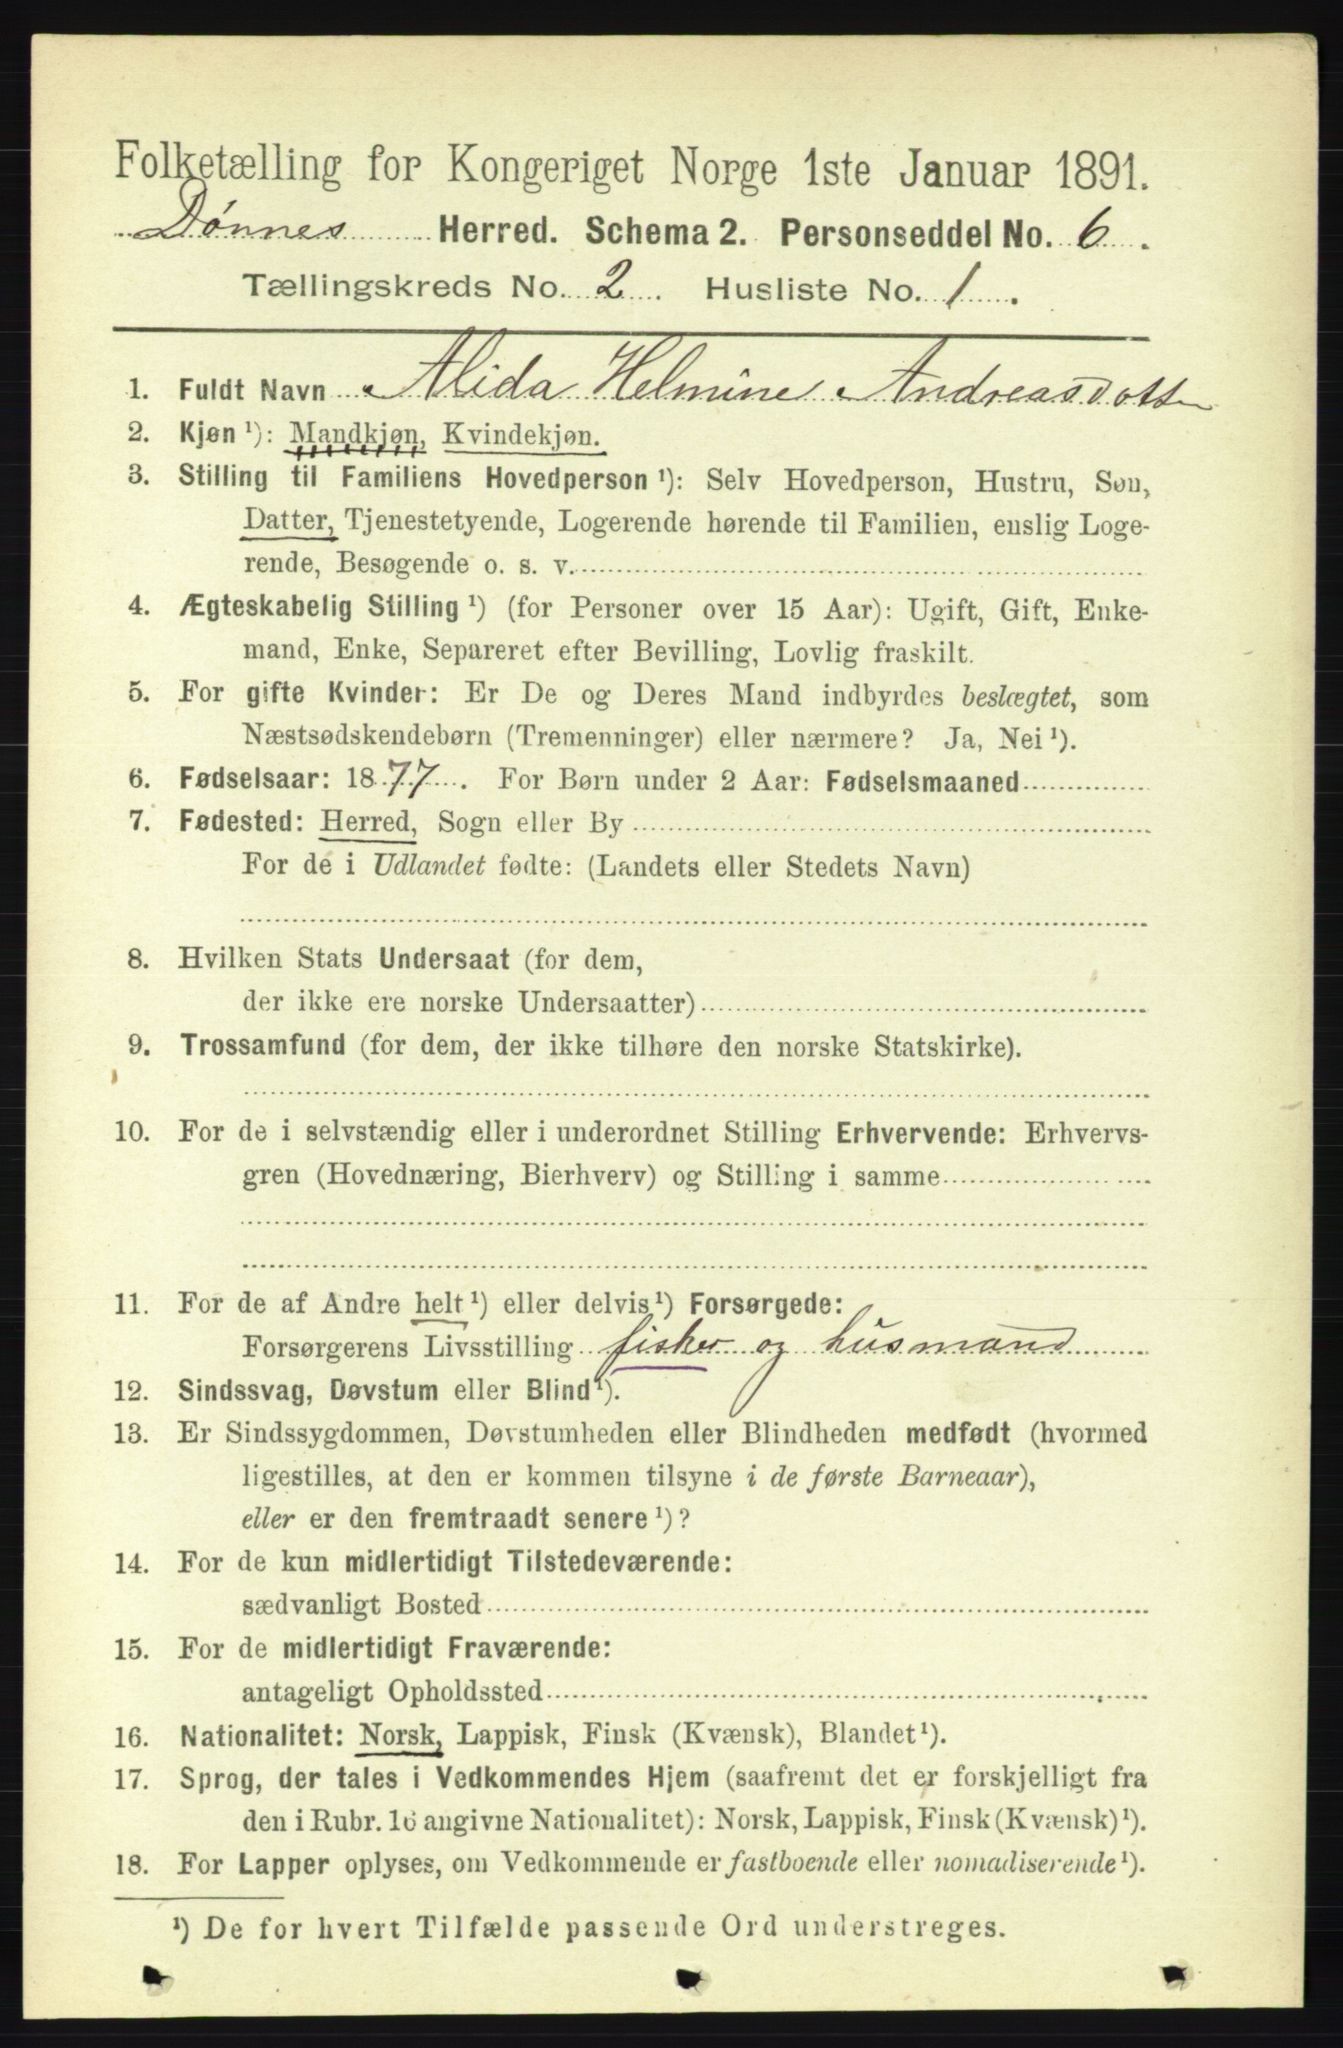 Folketælling for Kongeriget Norge 1ste Januar 1891.
Dønnes Herred. Schema 2. Personseddel No. 6.
Tællingskreds No. 2. Husliste No. 1.
1. Fuldt Navn Alida Helmine Andreasdotter
2. Kjøn ¹): Mandkjøn, Kvindekjøn.
3. Stilling til Familiens Hovedperson ¹): Selv Hovedperson, Hustru, Søn,
Datter, Tjenestetyende, Logerende hørende til Familien, enslig Loge-
rende, Besøgende o. s. v.
4. Ægteskabelig Stilling ¹) (for Personer over 15 Aar): Ugift, Gift, Enke-
mand, Enke, Separeret efter Bevilling, Lovlig fraskilt.
5. For gifte Kvinder: Er De og Deres Mand indbyrdes beslægtet, som
Næstsødskendebørn (Tremenninger) eller nærmere? Ja, Nei ¹).
6. Fødselsaar: 1877. For Børn under 2 Aar: Fødselsmaaned
7. Fødested: Herred, Sogn eller By
For de i Udlandet fødte: (Landets eller Stedets Navn)
8. Hvilken Stats Undersaat (for dem,
der ikke ere norske Undersaatter)
9. Trossamfund (for dem, der ikke tilhøre den norske Statskirke).
10. For de i selvstændig eller i underordnet Stilling Erhvervende: Erhvervs-
gren (Hovednæring, Bierhverv) og Stilling i samme
11. For de af Andre helt ¹) eller delvis ¹) Forsørgede:
Forsørgerens Livsstilling fisker og husmand
12. Sindssvag, Døvstum eller Blind ¹).
13. Er Sindssygdommen, Døvstumheden eller Blindheden medfødt (hvormed
ligestilles, at den er kommen tilsyne i de første Barneaar),
eller er den fremtraadt senere ¹)?
14. For de kun midlertidigt Tilstedeværende:
sædvanligt Bosted
15. For de midlertidigt Fraværende:
antageligt Opholdssted
16. Nationalitet: Norsk, Lappisk, Finsk (Kvænsk), Blandet ¹).
17. Sprog, der tales i Vedkommendes Hjem (saafremt det er forskjelligt fra
den i Rubr. 16 angivne Nationalitet): Norsk, Lappisk, Finsk (Kvænsk) ¹).
18. For Lapper oplyses, om Vedkommende er fastboende eller nomadiserende ¹).
¹) De for hvert Tilfælde passende Ord understreges.